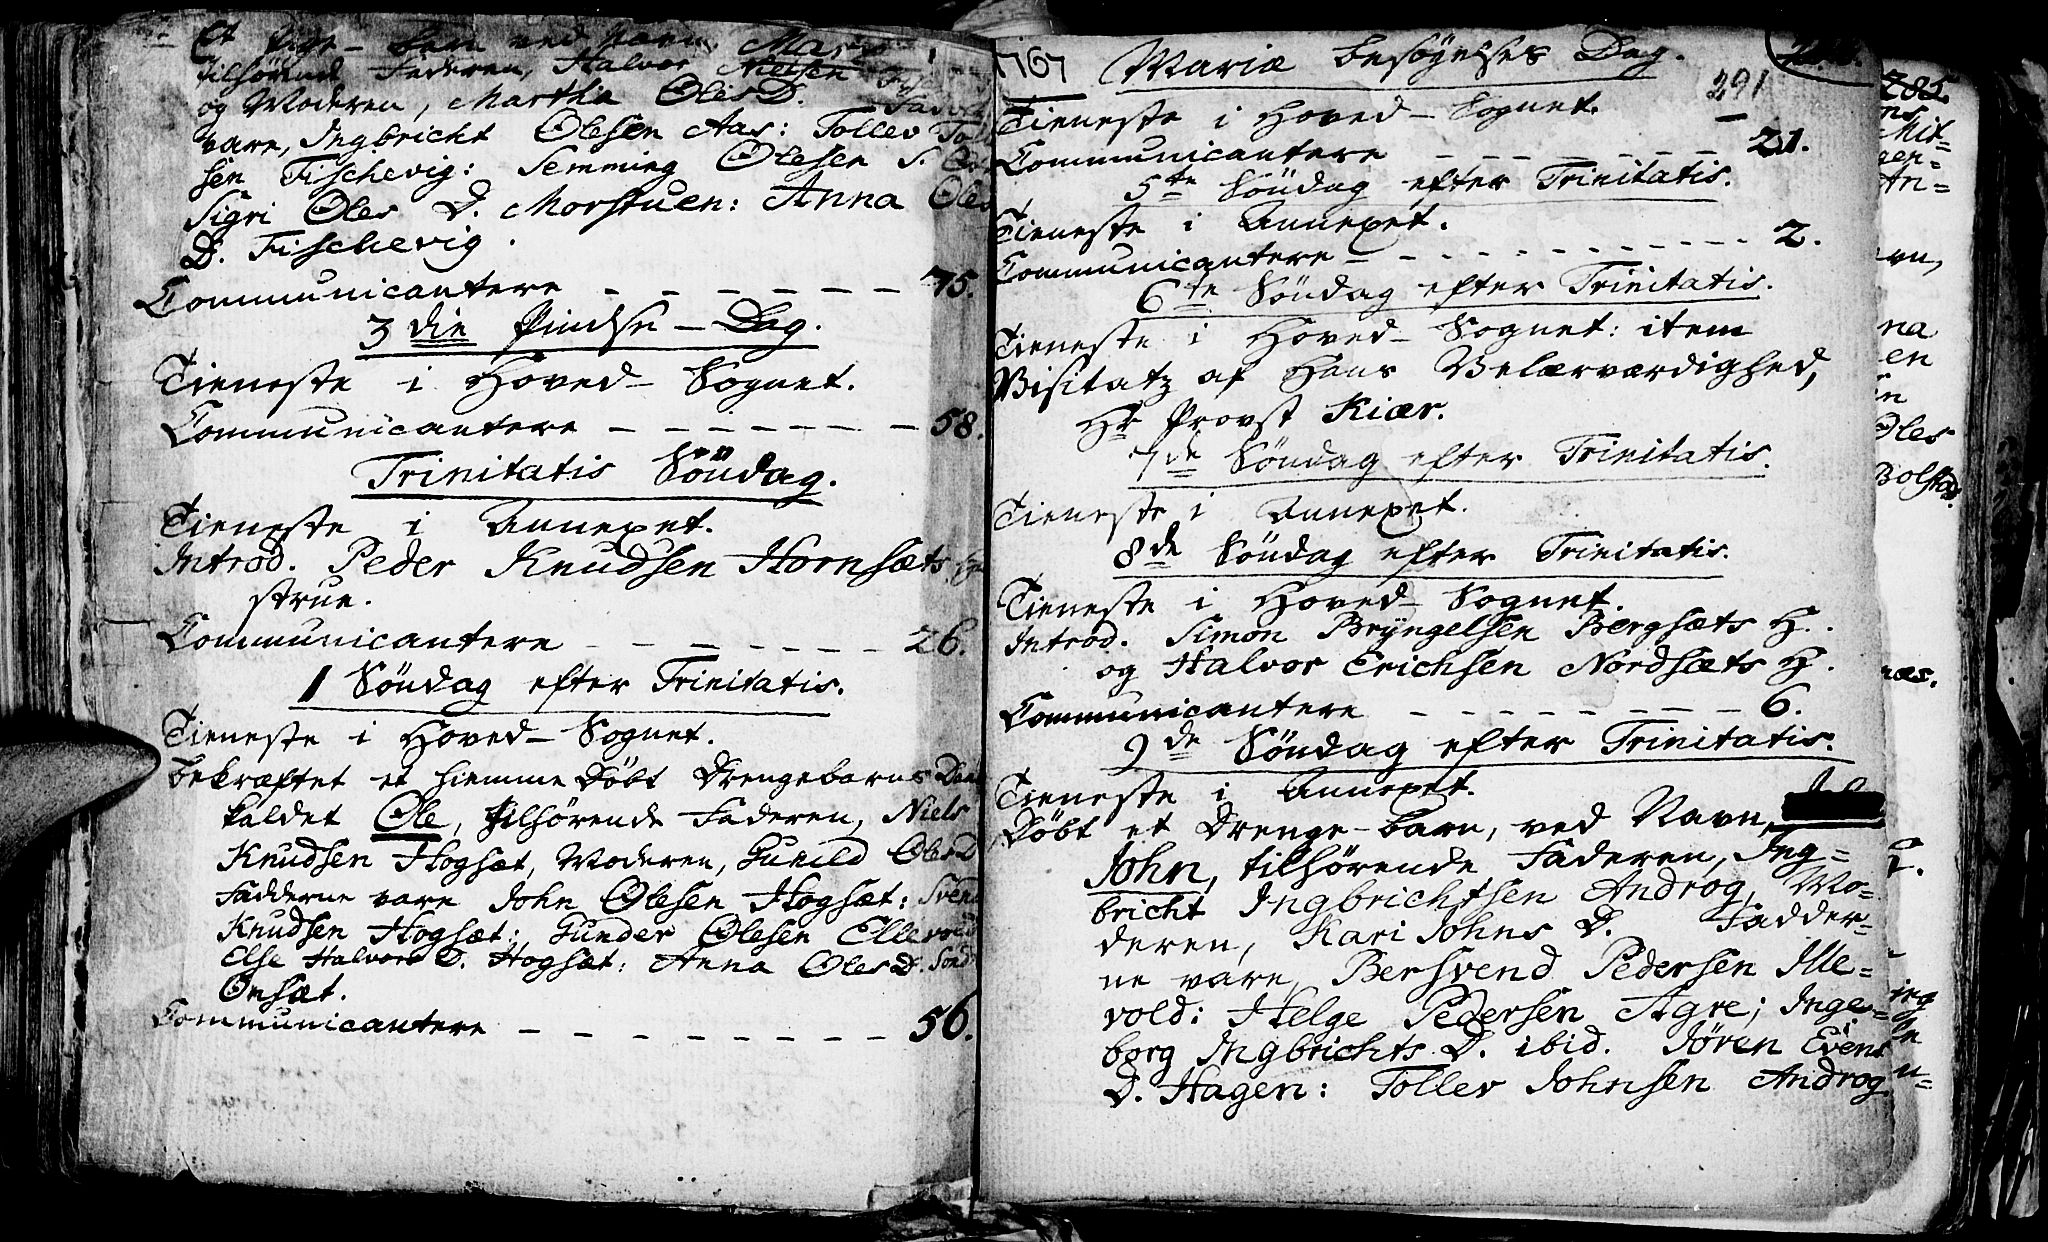 Et Pige-barn ved Navn, Mar
tilhørende Faderen, Halvor Nielsen
og Moderen, Martha OlesD. Fad
vare, Ingbricht Olesen Aas: Tollev
sen Fischevig: Semming Olesen S.
Sigri Oles D. Morstuen: Anna Oles
D. Fischevig.
Communicantere - - - - - - - 75.
3 die Pindse-Dag.
Tieneste i Hoved-Sognet.
Communicantere - - - - - - - 58.
Trinitatis Søndag.
Tieneste i Annexet.
Introd. Peder Knudsen Hornsæts
strue.
Communicantere - - - - - - - 26.
1 Søndag efter Trinitatis.
Tieneste i Hoved-Sognet.
bekræftet et hiemme døbt Drengebarn
kaldet Ole, tilhørende Faderen, Niels
Knudsen Hogsæt, Moderen, Gunild OlesD
Fadderne vare John Olesen Hogsæt: Svend
Knudsen Hogsæt: Gunder Olesen Ellevold
Else Halvors D. Hogsæt: Anna OlesD.
Onsæt.
Communicantere - - - - - - - - 56.
1767 Mariæ besøgelses Dag.
291
Tieneste i Hoved-Sognet.
Communicantere - - - - - - - 21.
5te Søndag efter Trinitatis.
Tieneste i Annexet.
Communicantere - - - - - - - - - 2.
6te Søndag efter Trinitatis.
Tieneste i Hoved-Sognet: item
Visitatz af Hans Velærværdighed,
Hr Provst Kiær.
7de Søndag efter Trinitatis.
Tieneste i Annexet.
8de Søndag efter Trinitatis.
Tieneste i Hoved-Sognet.
Introd. Simon Bryngelsen Bergsæts H.
og Halvor Erichsen Nordsæts H.
Communicantere - - - - - - - - 6.
9de Søndag efter Trinitatis.
Tieneste i Annexet.
Døbt et Drenge-barn, ved Navn,
John, tilhørende Faderen, Ing=
bricht Ingbrichtsen Androg, Mo=
deren, Kari Johns D. Fadder=
ne vare, Bersvend Pedersen Ille=
vold: Helge Pedersen Agre; Inge=
borg Ingbrichts D. ibid. Jøren Evens
D. Hagen: Tollev Johnsen Androg
285.